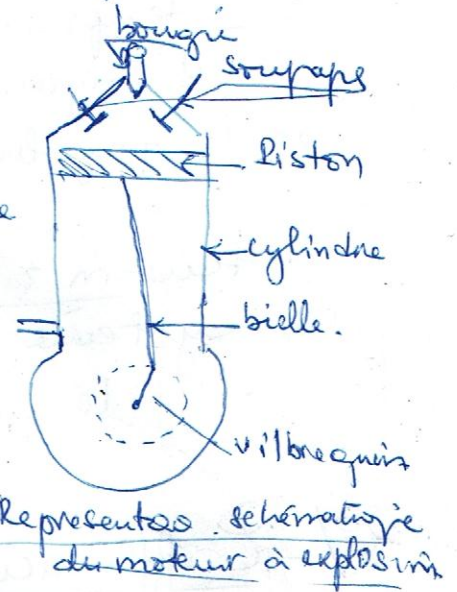 bougie
soupapes
Piston
e
cylindre
bielle.
vilbrequin
Representao. schématique
du moteur à explosion